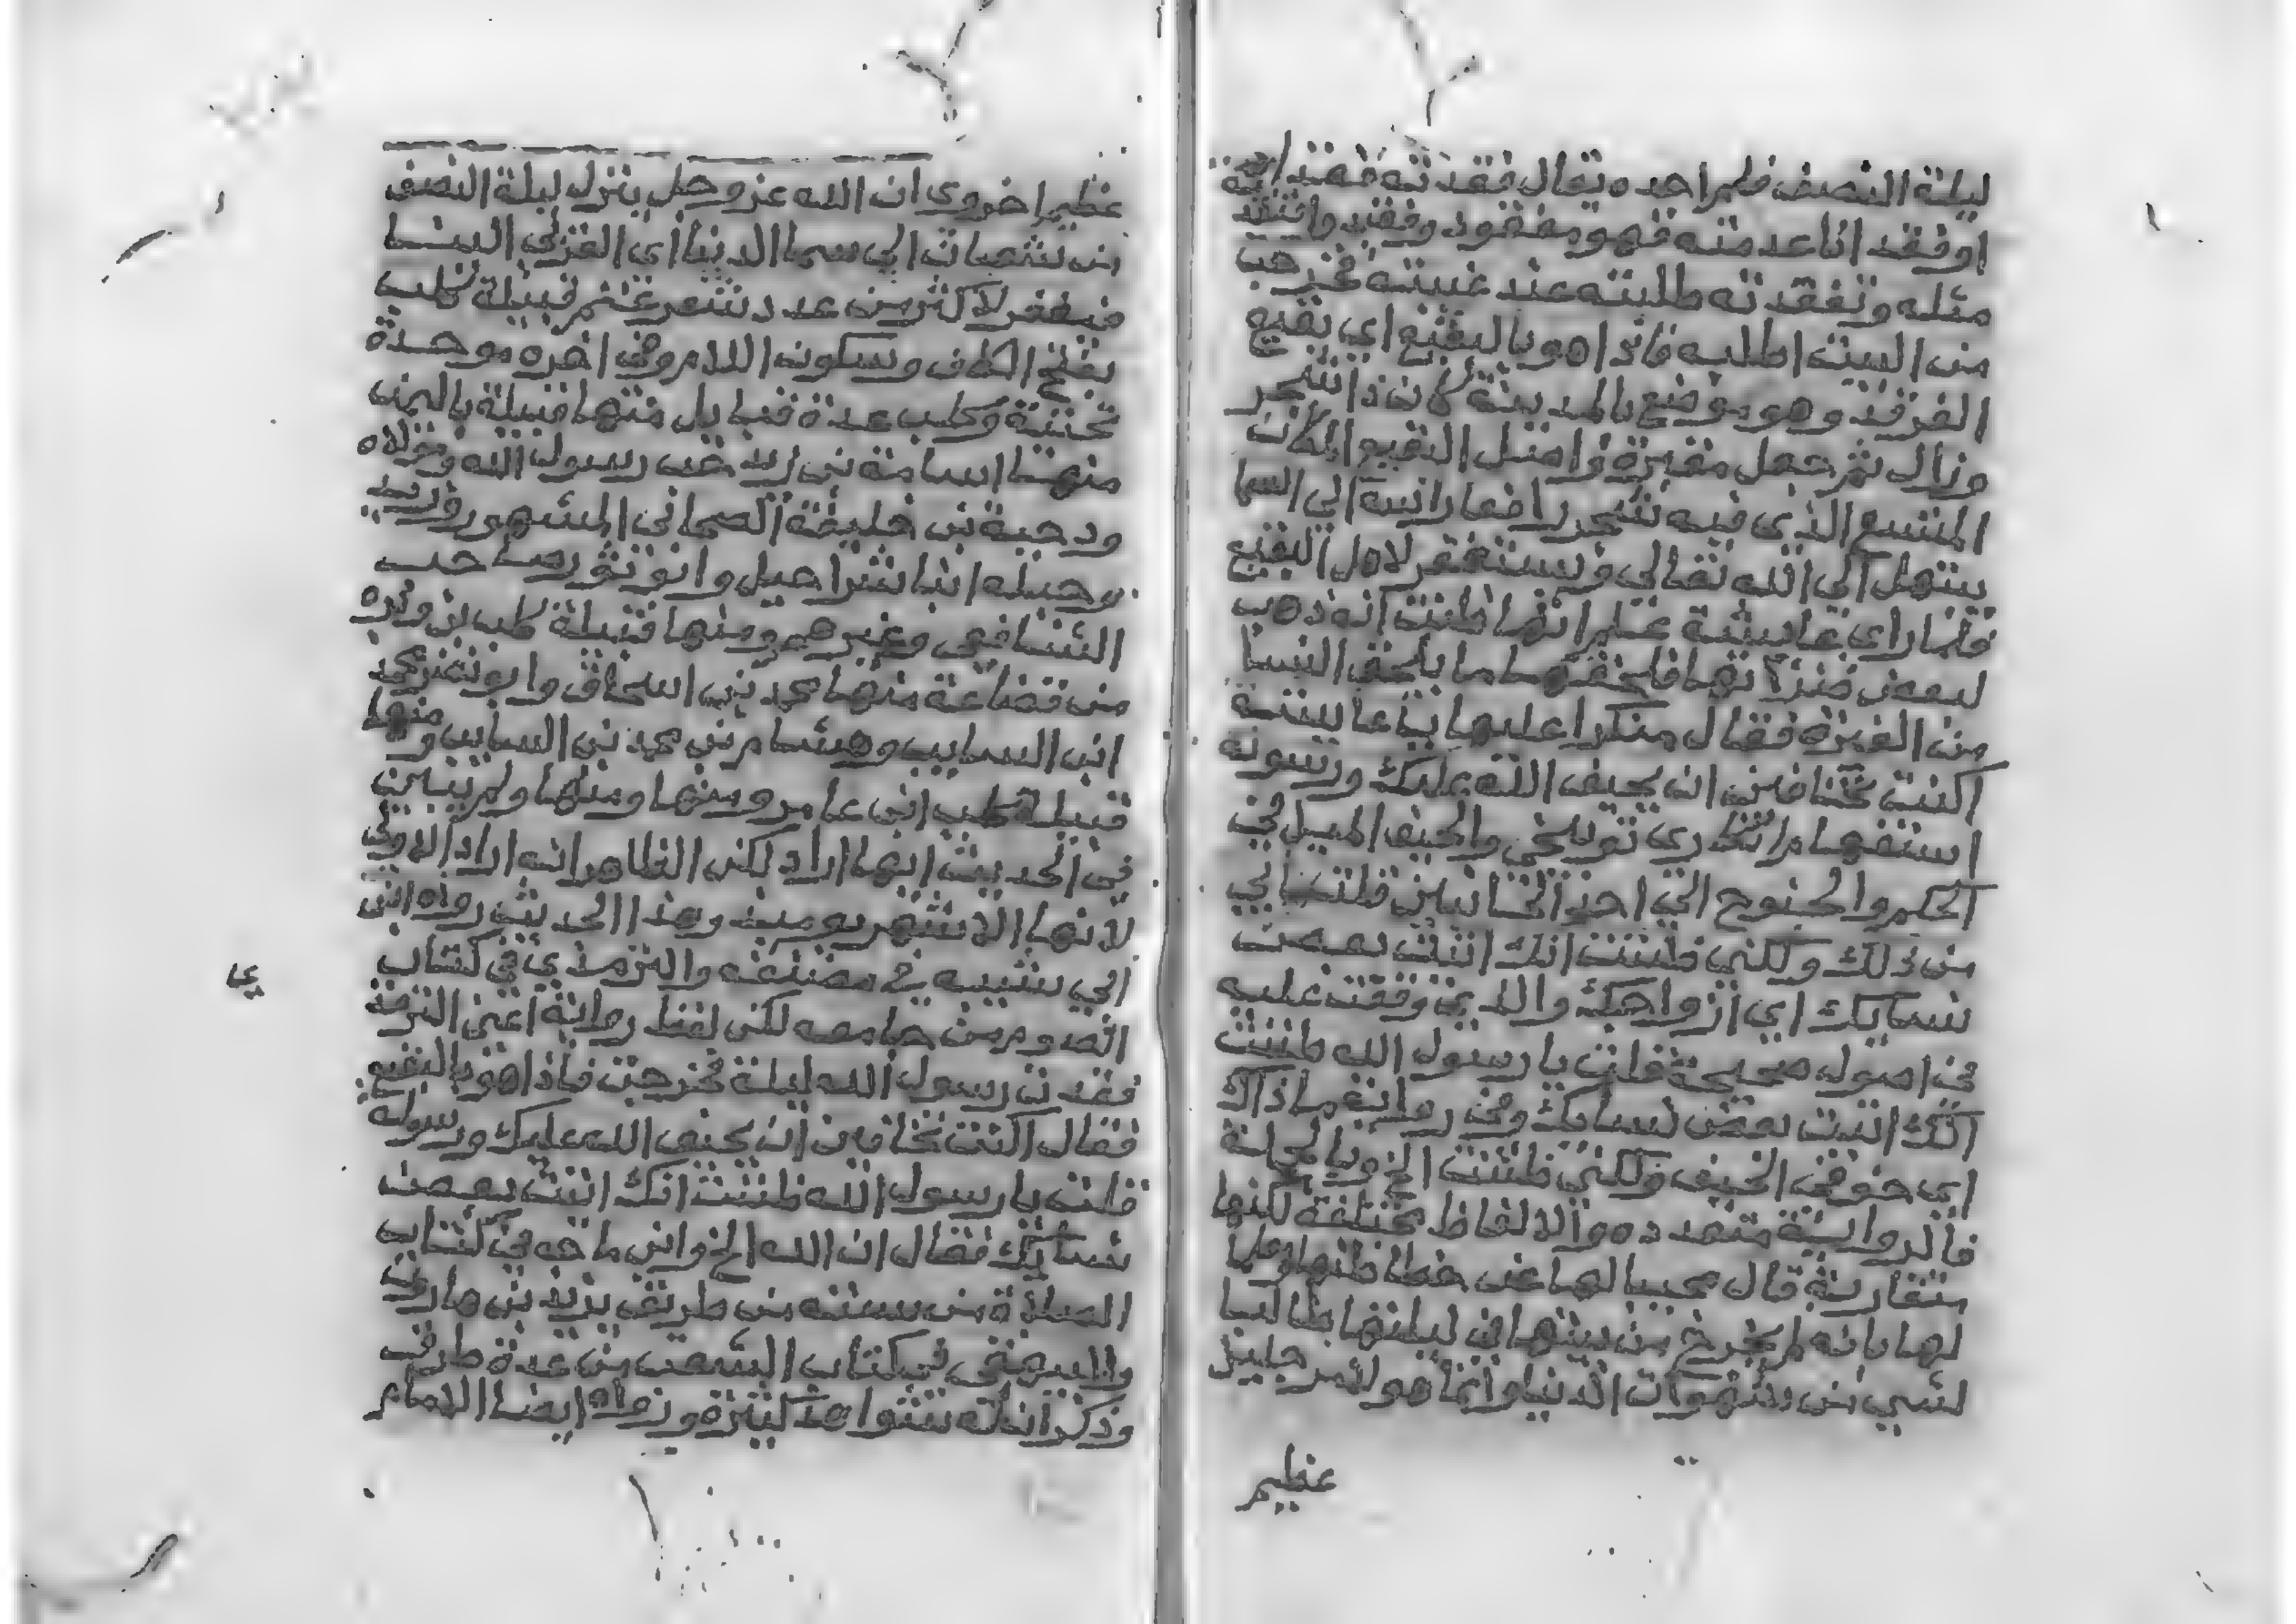 ليلة النصف فلم اجده يقال فقدته فقدا
او فقد اناعدمته فهو مفقود وفقيد وافتقد
مثله وتفقدته طلبته عند غيبته فخرجت
من البيت اطلبه فاذا هو بالبقيع اي بقيع
الغرقد وهو موضع بالمدينة كان ذا شجر
وزال ثم جعل مقبرة واصل البقيع المكان
المتسع الذي فيه شجر رافعا راسه الي السما
يبتهل الي الله تعالي ويستغفر لاهل البقيع
فلما راي عايشة علم انها ظنت انه ذهب
لبعض ضراتها فلحقها ما يلحق النسا
من الغيرة فقال منكرا عليها يا عايشة
اكنت تخافين ان يحيف الله عليك ورسوله
استفهام انكاري توبيخي والحيف الميل في
الحكم والجنوح الي احد الجانبين قلت مابي
من ذلك ولكني ظننت انك اتيت بعض
نسايك اي ازواجك والذي وقفت عليه
في اصول صحيحة قلت يا رسول الله ظننت
انك اتيت بعض نسايك وفي رواية ما ذاك
اي خوفي الحيف ولكني ظننت الخ وبالجملة
فالرواية متعدده والالفاظ مختلفة لكنها
متقاربة قال مجيبا لها عن خطا ظنها ومعلما
لها بانه لم يخرج من بيتها في ليلتها طالبا
لشي من شهوات الدنيا وانما هو لامر جليل
عظيم
عظيم اخروي ان الله عز وجل ينزل ليلة النصف
من شعبان الي سما الدنيا اي القربي الينا
فيغفر لاكثر من عدد شعر غنم قبيلة كلب
بفتح الكاف وسكون اللام وفي اخره موحدة
تحتية وكلب عدة قبايل منها قبيلة باليمن
منها اسامة بن زيد حب رسول الله ومولاه
ودحية بن خليفة الصحابي المشهور وزيد
وجبلة ابنا شراحيل وابو ثور صاحب
الشافعي وغيرهم ومنها قبيلة كلب بن وبره
من قضاعة منها محمد بن اسحاق وابو نضر محمد
ابن السايب وهشام بن محمد بن السايب ومنها
قبيلة كلب ابن عامر ومنها ومنها ولم يتبين
في الحديث ايها اراد لكن الظاهر انه اراد الاولي
لانها الاشهر يوميذ وهذا الحديث رواه ابن
ابي شيبه في مصنفه والترمذي في كتاب
الصوم من جامعه لكن لفظ رواية اعني الترمذ
فقدت رسول الله ليلة فخرجت فاذا هو بالبقيع
فقال اكنت تخافين ان يحيف الله عليك ورسوله
قلت يا رسول الله ظننت انك اتيت بعض
نسايك فقال ان الله الخ وابن ماجه في كتاب
الصلاة من سننه من طريق يزيد بن هارون
والبيهقي في كتاب الشعب من عدة طرق
وذكر ان له شواهد كثيرة ورواه ايضا الامام